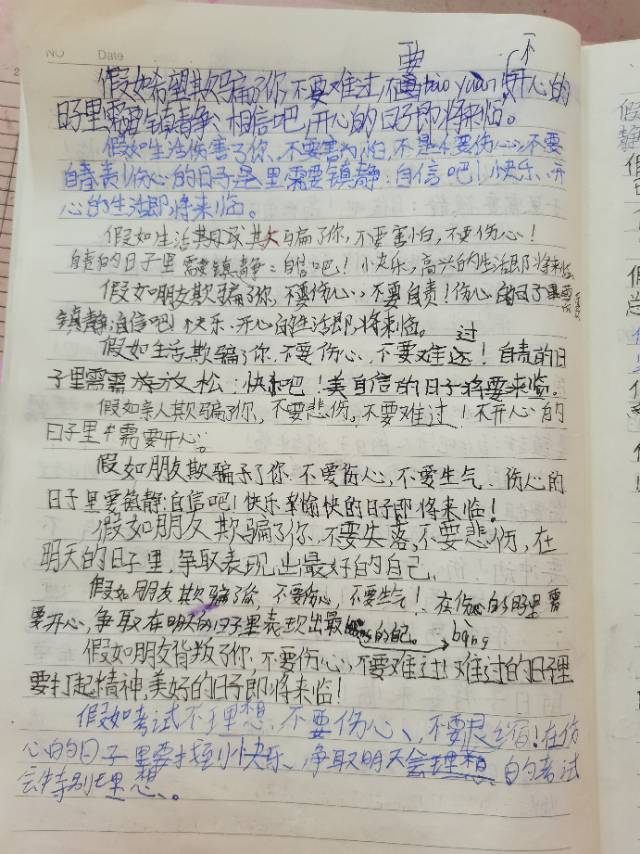 NO Date
要 不
假如希望欺骗了你,不要难过,不要bào yuàn,开心的
日子里需要镇静、相信吧,开心的日子即将来临。
假如生活伤害了你、不要害怕,不要伤心、不要
自责!伤心的日子里需要镇静:自信吧!快乐、开
心的生活即将来临。
假如生活欺骗了你,不要害怕,不要伤心!
自责的日子里需要镇静:自信吧!快乐,高兴的生活即将来临
假如朋友欺骗了你、不要伤心、不要自责!伤心的日子里需要
镇静:自信吧!快乐、开心的生活即将来临。
过
假如生活欺骗了你、不要伤心、不要难过!自责的日
子里需要放松:快乐吧!美自信的日子将要来临。
假如亲人欺骗了你,不要悲伤。不要难过!不开心的
日子里需要开心。
假如朋友欺骗了你、不要伤心,不要生气、伤心的
日子里要镇静:自信吧!快乐愉快的日子即将来临!
假如朋友欺骗了你、不要失落,不要悲伤,在
明天的日子里,争取表现出最好的自己。
假如朋友欺骗了你,不要伤心,不要生气!在伤心的日子里需
要开心,争取在明天的日子里表现出最的自己。
bàng
假如朋友背叛了你、不要伤心、不要难过!难过的日子里
要打起精神,美好的日子即将来临!
假如考试不理想、不要伤心、不要退缩!在伤
心的日子里要找到小快乐、争取明天会理想、的考试
会特别理想、。